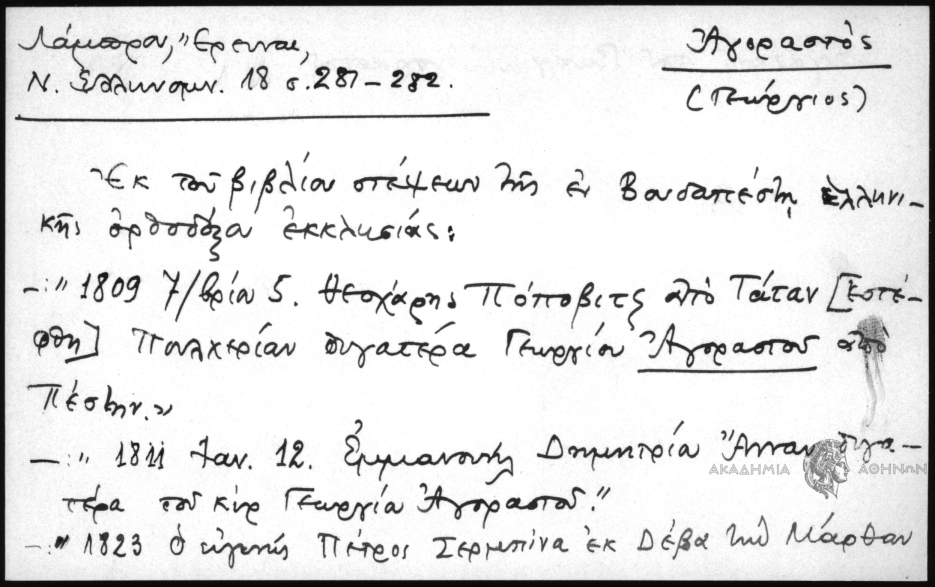 Λάμπρου, "Ερευναι,
Ν. Ελληνομν. 18 σ. 281-282.
Ἀγοραστὸς
(Γεώργιος)
Ἐκ τοῦ βιβλίου στέψεων τῆς ἐν Βουδαπέστῃ ἑλληνι-
κῆς ὀρθοδόξου ἐκκλησιάς:
-:" 1809 7/βρίου 5. Θεοχάρης Πόποβιτς ἀπὸ Τάταν [ἐστέ-
φθη] Πουλχερίαν θυγατέρα Γεωργίου Ἀγοραστοῦ ἀπὸ
Πέστην."
-:" 1811 Ἰαν. 12. Ἐμμανουὴλ Δημητρίου Ἄνναν θυγα-
τέρα τοῦ κὺρ Γεωργίου Ἀγοραστοῦ."
-:" 1823 ὁ εὐγενὴς Πέτρος Σερμπίνα ἐκ Δέβα τὴν Μάρθαν
ΑΚΑΔΗΜΙΑ ΑΘΗΝΩΝ